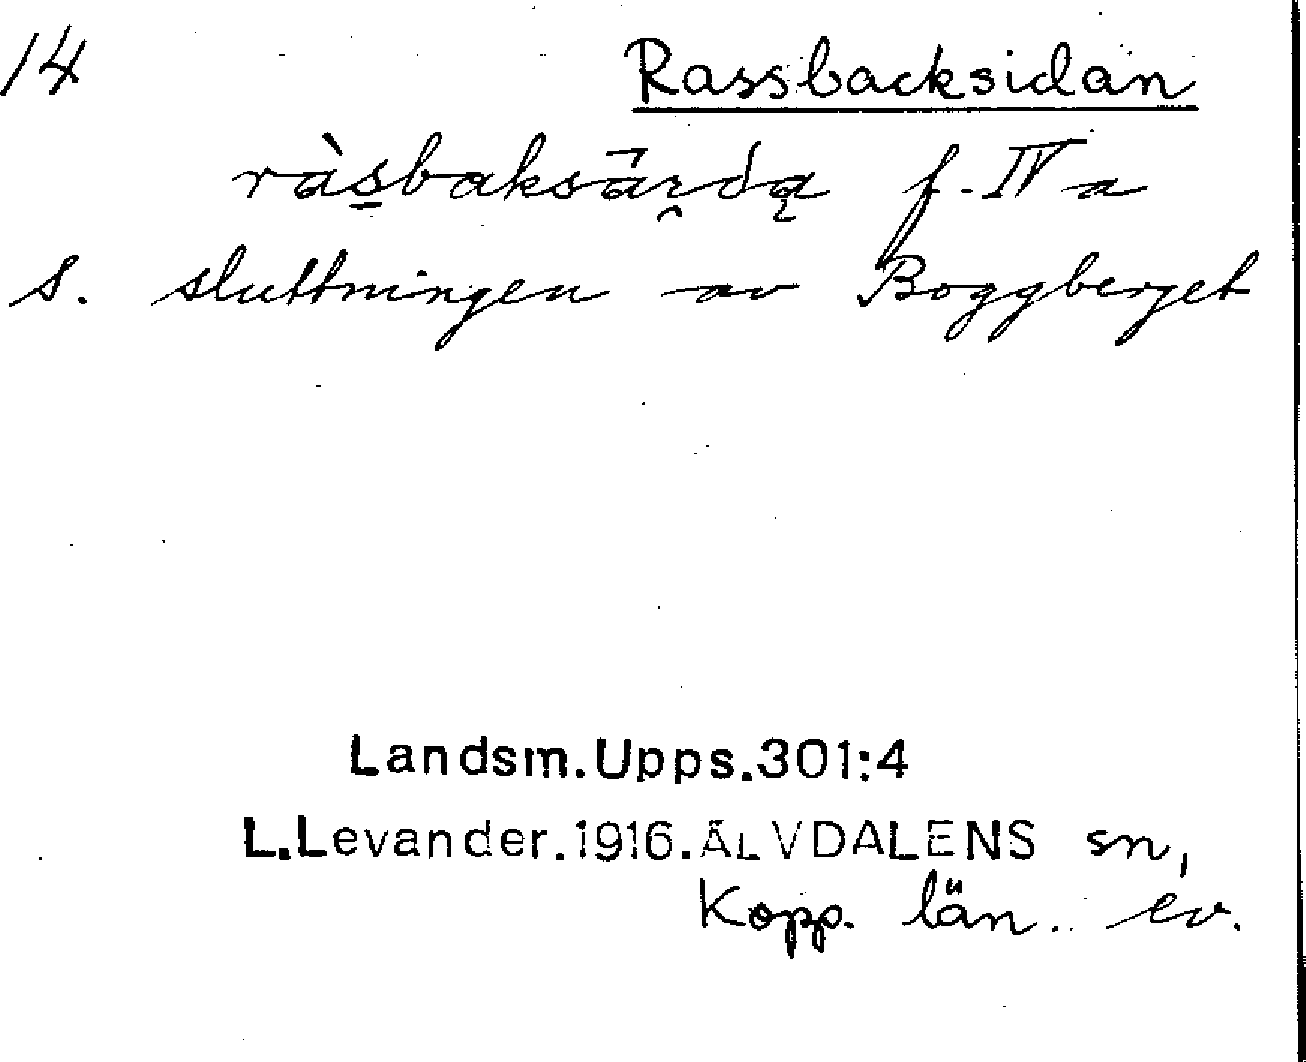 14 Rassbacksidan
ràs̲baksārda̧ f. IV a
S. sluttningen av Boggberget
Landsm.Upps.301:4
L.Levander.1916.ÄLVDALENS sn,
Kopp. län. ev.